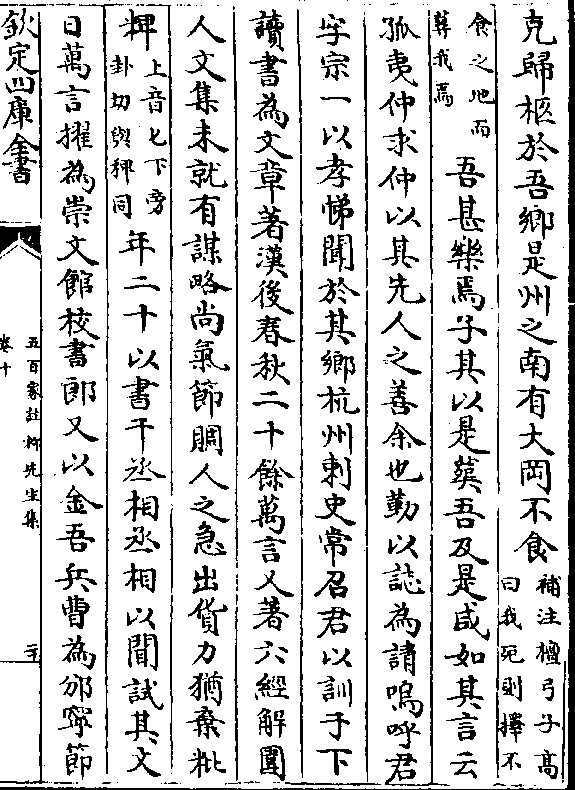 克歸柩於吾鄉是州之南有大岡不食
補注檀弓子髙
曰我死則擇不
食之地而
葬我焉
吾甚樂焉子其以是葬吾及是咸如其言云
孤夷仲求仲以其先人之善余也勤以誌為請嗚呼君
字宗一以孝悌聞於其鄉杭州刺史常召君以訓于下
讀書為文章著漢後春秋二十餘萬言又著六經解圍
人文集未就有謀略尚氣節賙人之急出貨力猶棄粃
粺
上音匕下旁
卦切與稗同
年二十以書干丞相丞相以聞試其文
日萬言擢為崇文館校書郎又以金吾兵曹為邠寧節
欽定四庫全書
五百家註柳先生集
卷十